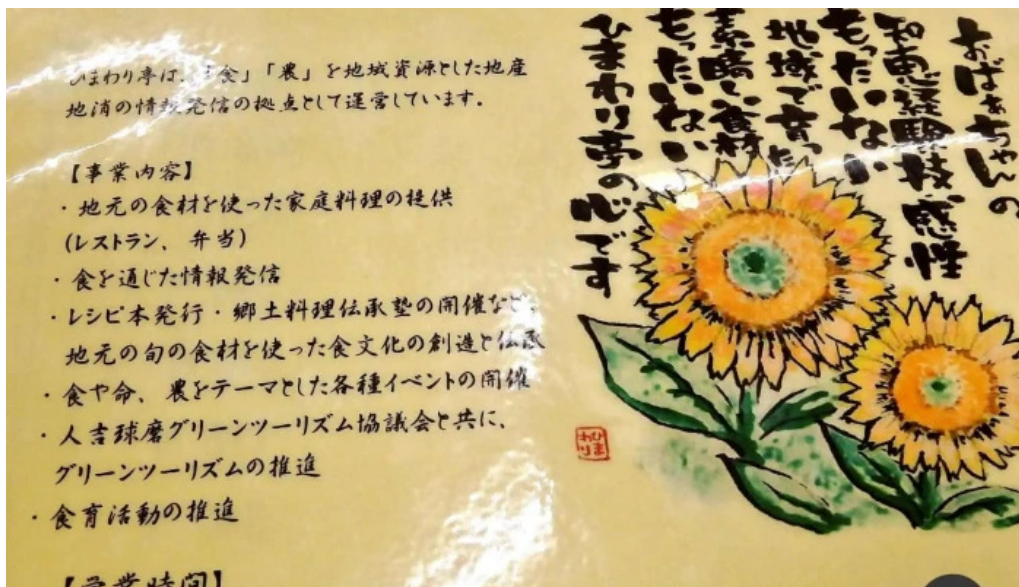 ひまわり亭は、「食」「農」を地域資源とした地産
地消の情報発信の拠点として運営しています。
【事業内容】
・地元の食材を使った家庭料理の提供
(レストラン、弁当)
・食を通じた情報発信
・レシピ本発行・郷土料理伝承塾の開催など、
地元の旬の食材を使った食文化の創造と伝承
・食や命、農をテーマとした各種イベントの開催
・人吉球磨グリーンツーリズム協議会と共に、
グリーンツーリズムの推進
・食育活動の推進
【営業時間】
おばぁちゃんの
知恵経験技感性
もったいない
地域で育った
素晴しい食材
もったいない
ひまわり亭の心です
ひまわり